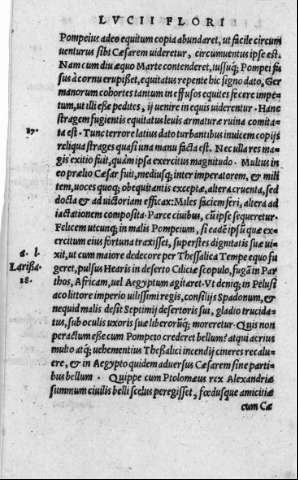 LVCII FLORI
Pompeius adeo equitum copia abundaret, ut facile circum
uenturus sibi Cæsarem uideretur, circumuentus ipse est.
Nam cum diu æquo Marte contenderet, iussuq; Pompei fu
sus à cornu erupisset, equitatus repente hic signo dato, Ger
manorum cohortes tantum in effusos equites fecere impe=
tum, ut illi esse pedites, ij uenire in equis uiderentur. Hanc
stragem fugientis equitatus leuis armaturæ ruina comita=
17. ta est. Tunc terrore latius dato turbantibus inuicem copijs
reliqua strages quasi una manu facta est. Nec ulla res ma=
gis exitio fuit, quàm ipsa exercitus magnitudo. Multus in
eo prælio Cæsar fuit, mediusq; inter imperatorem, & mili
tem, uoces quoq; obequitantis exceptæ, altera cruenta, sed
docta & ad uictoriam efficax: Miles faciem feri, altera ad
iactationem composita. Parce ciuibus, cùm ipse sequeretur.
Felicem utcunq; in malis Pompeium, si eadē ipsū quæ exer=
citum eius fortuna traxisset, superstes dignitatis suæ ui=
a. l. xit, ut cum maiore dedecore per Thessalica Tempe equo fu
Larissā. geret, pulsus Hearis in deserto Ciliciæ scopulo, fugā in Par
18. thos, Africam, uel Aegyptum agitaret. Vt deniq; in Pelusi
aco littore imperio uilissimi regis, consilijs Spadonum, &
nequid malis desit Septimij desertoris sui, gladio trucida=
tus, sub oculis uxoris suæ liberorūq; moreretur. Quis non
peractum esse cum Pompeio crederet bellum? atqui acrius
multo atq; uehementius Thessalici incendij cineres recalue
re, & in Aegypto quidem aduersus Cæsarem sine parti=
bus bellum. Quippe cum Ptolomæus rex Alexandriæ
summum ciuilis belli scelus peregisset, fœdusque amicitiæ
cum Cæ